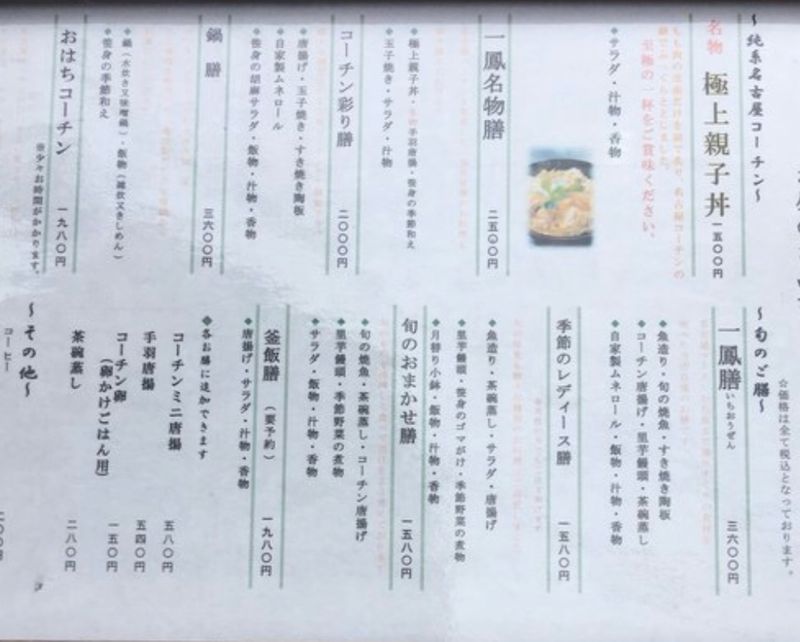 ～純系名古屋コーチン～
名物 極上親子丼 一五〇〇円
至極の一杯をご賞味ください。
◆サラダ・汁物・香物
一鳳名物膳 二五〇〇円
◆極上親子丼・手羽唐揚・笹身の季節和え
◆玉子焼き・サラダ・汁物
コーチン彩り膳 二〇〇〇円
◆唐揚げ・玉子焼き・すき焼き陶板
◆自家製ムネロール
◆笹身の胡麻サラダ・飯物・汁物・香物
鍋膳 三六〇〇円
◆鍋（水炊き又味噌鍋）・飯物（雑炊又きしめん）
◆笹身の季節和え
おはちコーチン 一九八〇円
※少々お時間がかかります。
☆価格は全て税込となっております。
～旬のご膳～
一鳳膳 いちおうぜん 三六〇〇円
◆魚造り・旬の焼魚・すき焼き陶板
◆コーチン唐揚げ・里芋饅頭・茶碗蒸し
◆自家製ムネロール・飯物・汁物・香物
季節のレディース膳 一五八〇円
◆魚造り・茶碗蒸し・サラダ・唐揚げ
◆里芋饅頭・笹身のゴマがけ・季節野菜の煮物
◆月替り小鉢・飯物・汁物・香物
旬のおまかせ膳 一五八〇円
◆旬の焼魚・茶碗蒸し・コーチン唐揚げ
◆里芋饅頭・季節野菜の煮物
◆サラダ・飯物・汁物・香物
釜飯膳（要予約） 一九八〇円
◆唐揚げ・サラダ・汁物・香物
◆各お膳に追加できます
コーチンミニ唐揚 五八〇円
手羽唐揚 五四〇円
コーチン卵（卵かけごはん用） 一五〇円
茶碗蒸し 二八〇円
～その他～
コーヒー